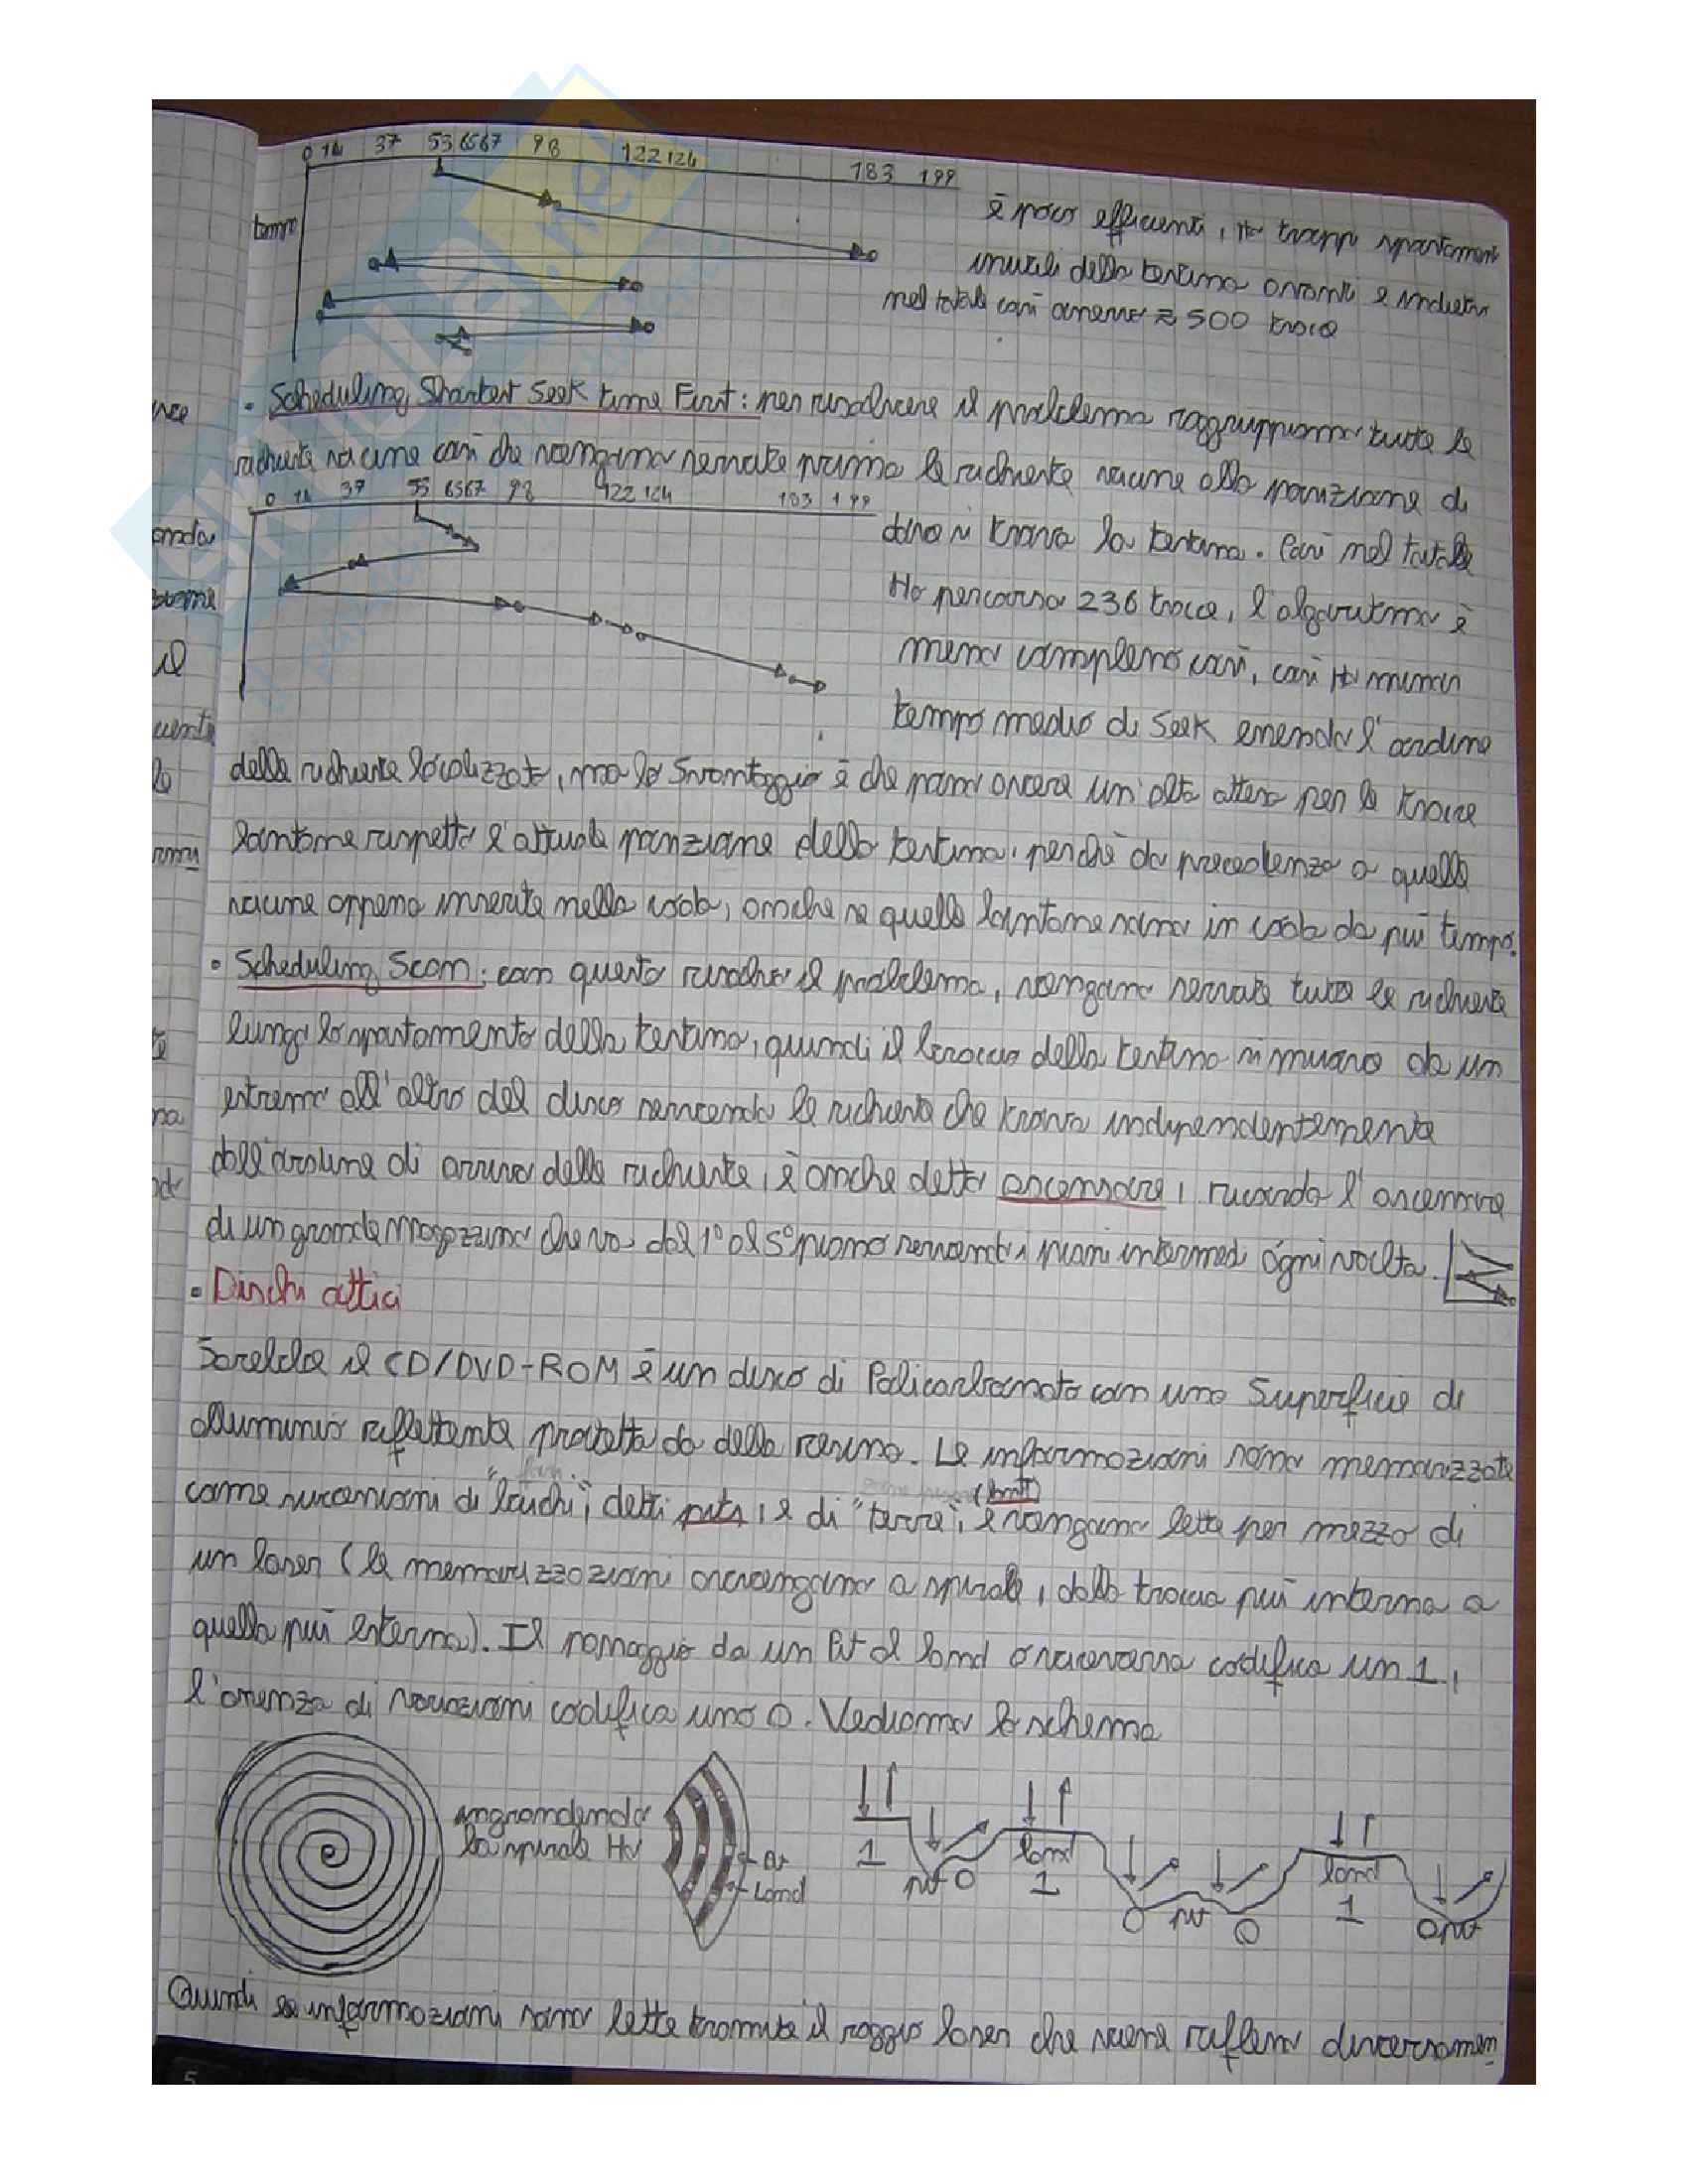 0 14 37 53 65 67 98 122 124 183 199
tempo
è poco efficienti, Ho troppi spostamenti
inutili della testina avanti e indietro
nel totale così avremo ≈ 500 tracce
• Scheduling Shortest Seek time First: per risolvere il problema raggruppiamo tutte le
richieste vicine così che vengano servite prima le richieste vicine alla posizione di
0 14 37 53 65 67 98 122 124 183 199
dove si trova la testina. Così nel totale
Ho percorso 236 tracce, l'algoritmo è
meno complesso così, così Ho minor
tempo medio di Seek essendo l'ordine
delle richieste localizzate, ma lo Svantaggio è che posso avere un'alta attesa per le tracce
lontane rispetto l'attuale posizione della testina, perchè da precedenza a quelle
vicine appena inserite nella coda, anche se quelle lontane sono in coda da più tempo.
• Scheduling Scan: con questo risolvo il problema, vengano servite tutte le richieste
lungo lo spostamento della testina, quindi il braccio della testina si muove da un
estremo all'altro del disco servendo le richieste che trova indipendentemente
dall'ordine di arrivo delle richieste, è anche detto ascensore, ricorda l'ascensore
di un grande magazzino che va dal 1° al 5° piano servendo i piani intermedi ogni volta.
• Dischi ottici
Sarebbe il CD/DVD-ROM è un disco di Policarbonato con una Superficie di
alluminio riflettente protetta da della resina. Le informazioni sono memorizzate
come successioni di "buchi", detti pits, e di "terre", e vengano lette per mezzo di
un laser (le memorizzazioni avvengano a spirale, dalla traccia più interna a
quella più esterna). Il passaggio da un Pit al land o viceversa codifica un 1,
l'assenza di variazioni codifica uno 0. Vediamo lo schema
ingrandendo
la spirale Ho
Pit
Land
1 pit 0 land 1 0 pit 0 land 1 0 pit
Quindi le informazioni sono lette tramite il raggio laser che viene riflesso diversamen